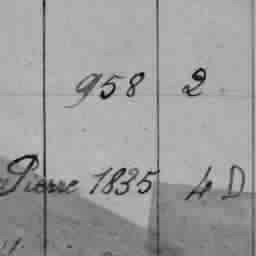 958 2
Pierre 1835 4 D